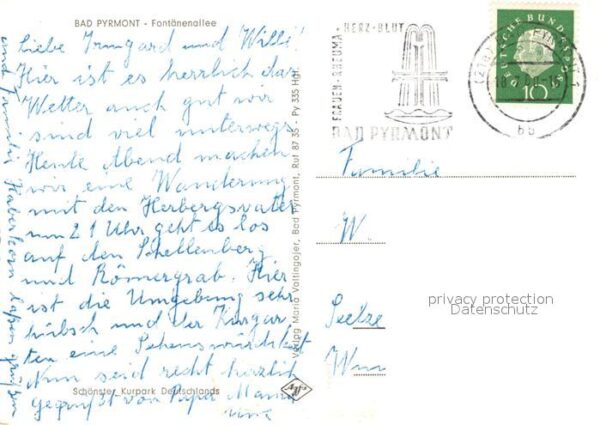 BAD PYRMONT - Fontänenallee
Liebe Irmgard und Willi!
Hier ist es herrlich das
Wetter auch gut wir
sind viel unterwegs.
Heute Abend machen
wir eine Wanderung
mit den Herbergsvater
um 21 Uhr geht es los
auf den Schellenberg
und Römergrab. Hier
ist die Umgebung sehr
hübsch und der Kurgar
ten eine Sehenswürdigkeit
Nun seid recht herzlich
gegrüßt von Papa Mama
und Familie Haberkorn laßen grüßen
Schönster Kurpark Deutschlands
Verlag Maria Voltingojer, Bad Pyrmont, Ruf 87 35 - Py 335 Hgl.
Agfa
FRAUEN-RHEUMA-HERZ-BLUT
BAD PYRMONT
bb
DEUTSCHE BUNDESPOST
10
Familie
W.
Seelze
Wun
privacy protection
Datenschutz